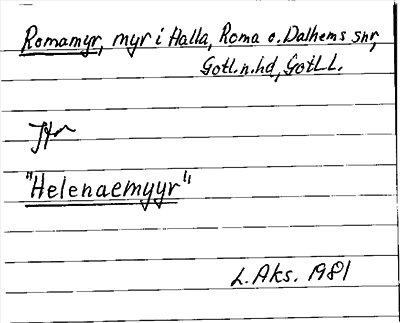 Romamyr, myr i Halla, Roma o. Dalhems snr,
Gotl.n.hd, Gotl.L.
Jfr
"Helenaemyyr"
L. Aks. 1981